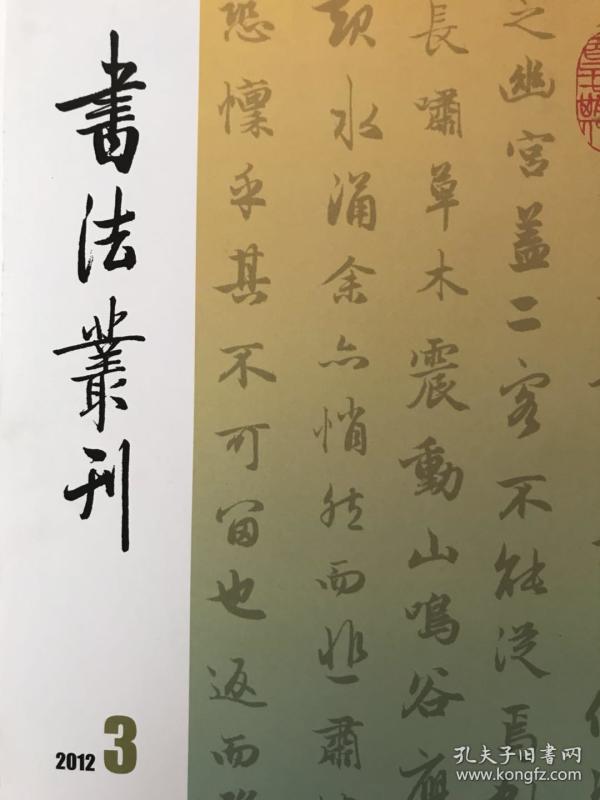 書法叢刊
2012 3
之幽宮蓋二客不能從焉劃
長嘯草木震動山鳴谷應
起水涌余亦悄然而悲肅
恐懍乎其不可留也返而
孔夫子旧书网
www.kongfz.com